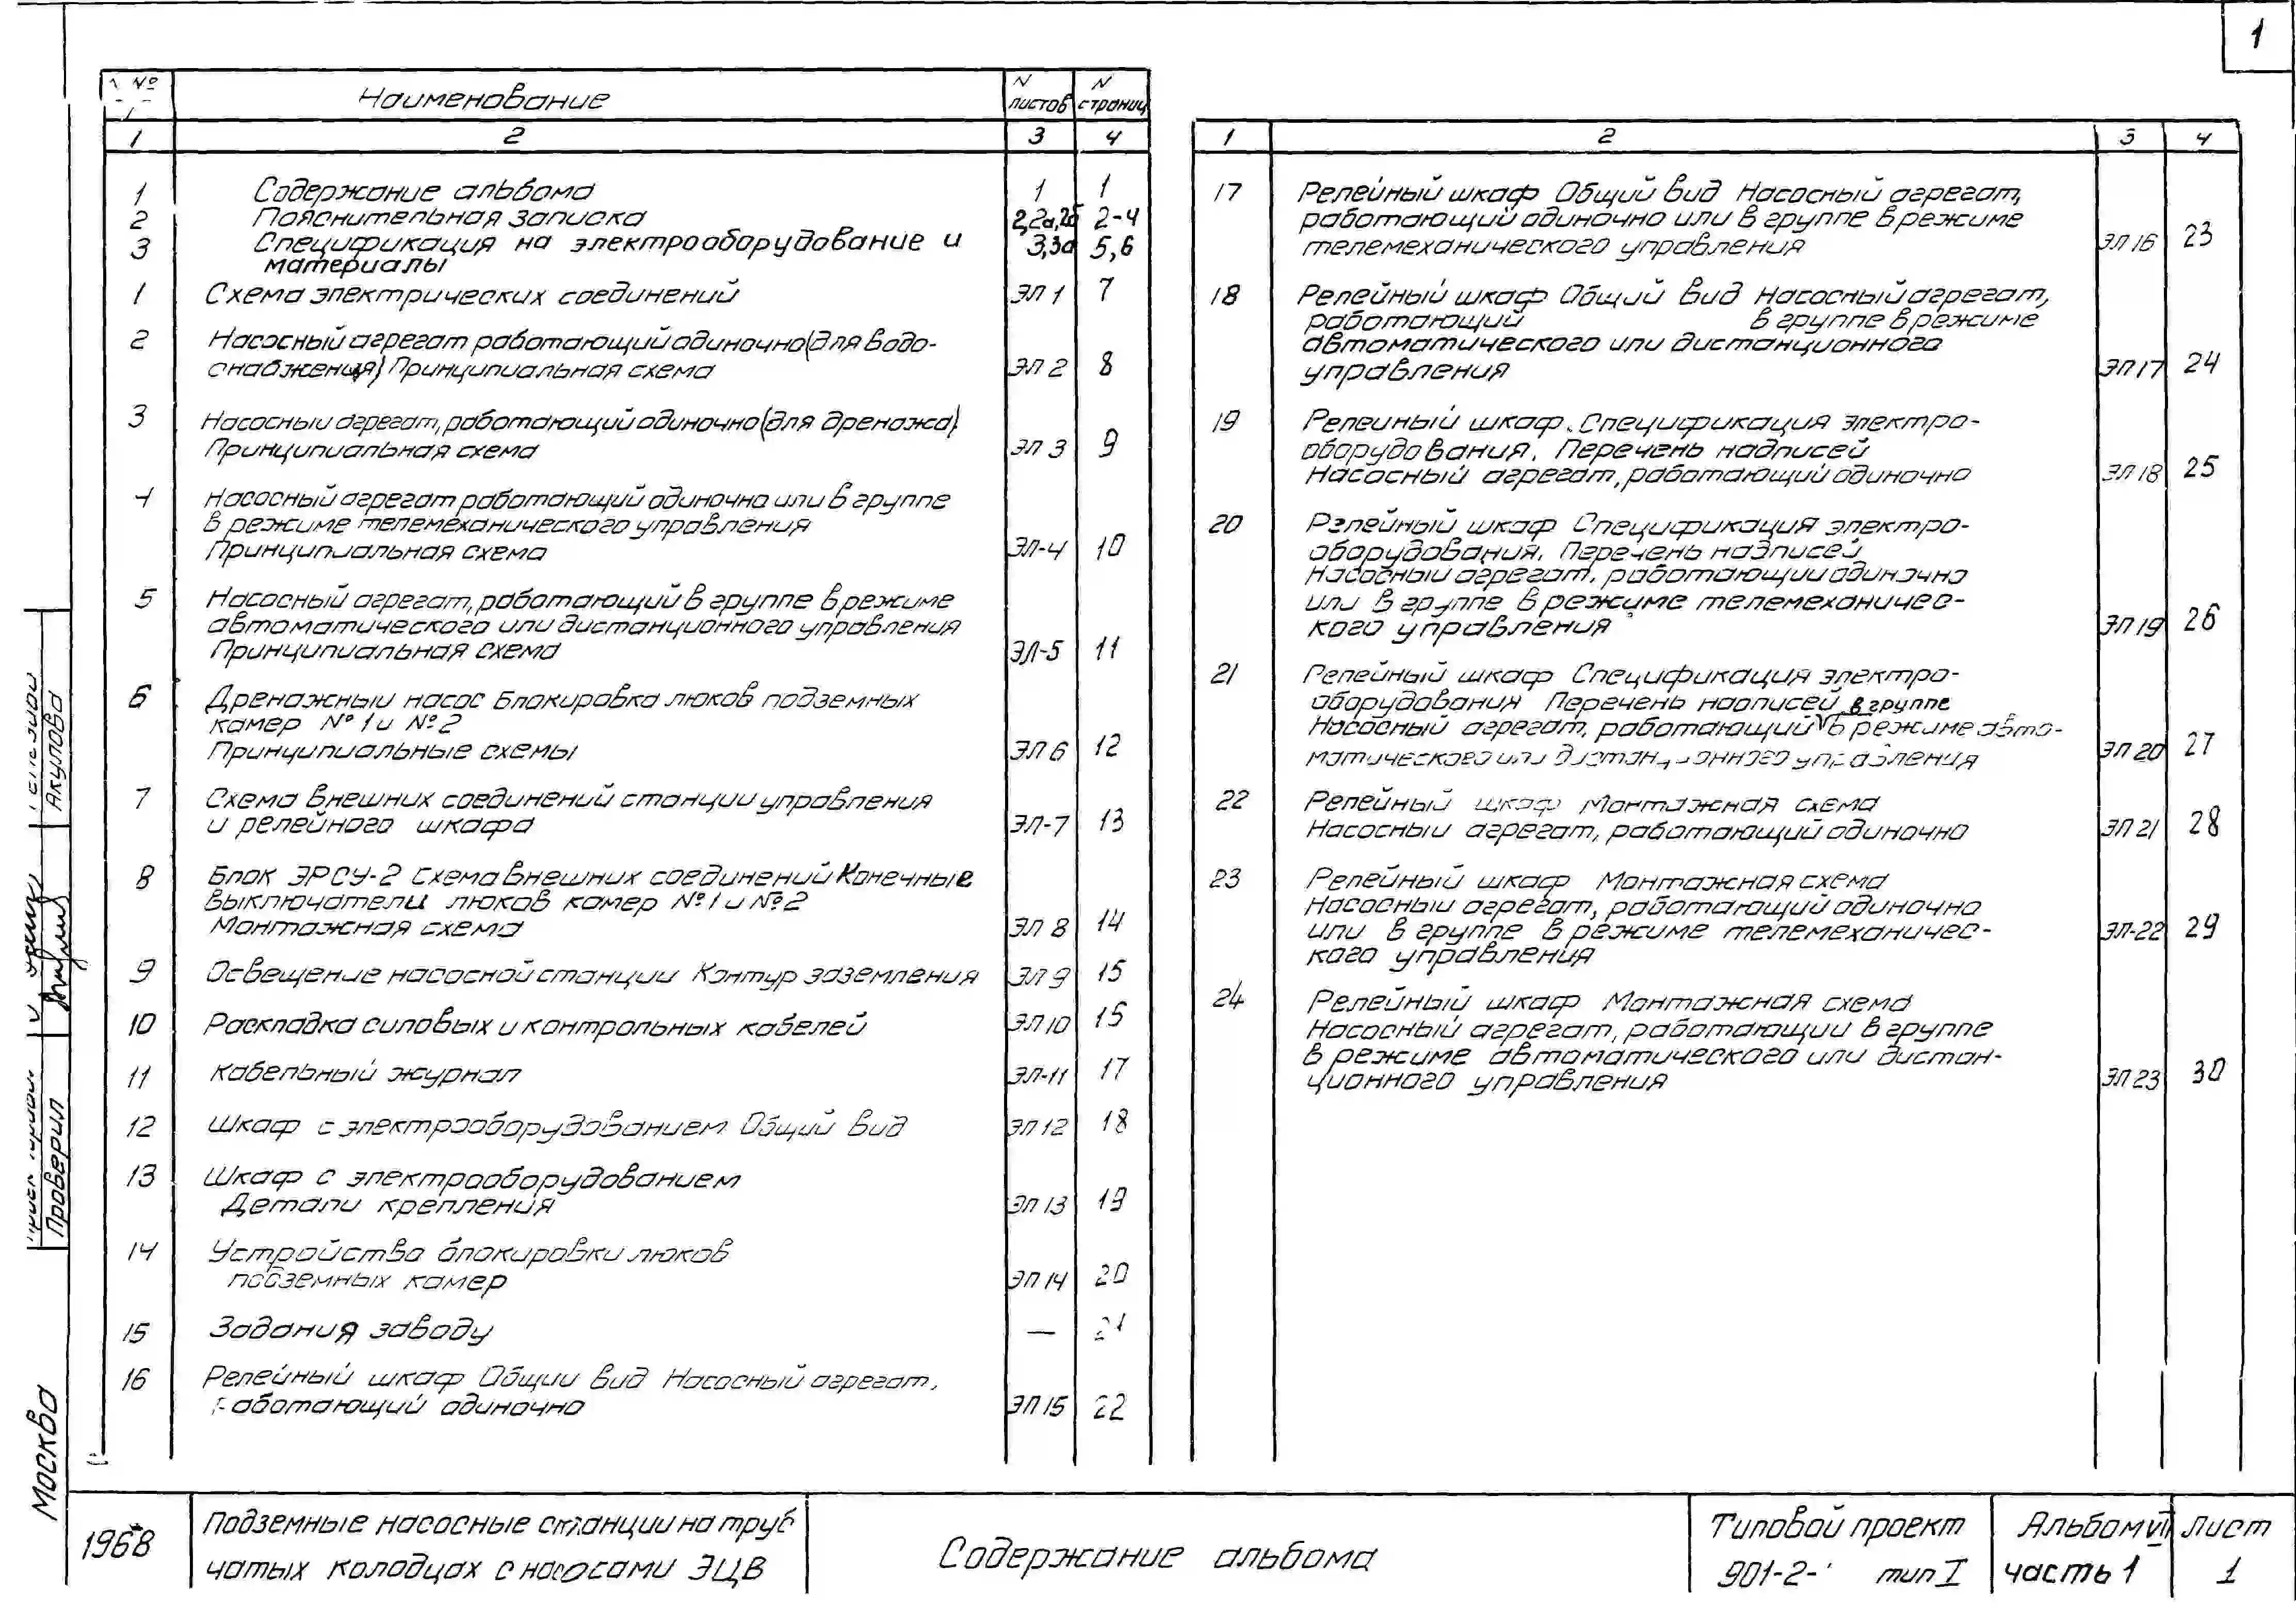 1
№
Наименование
N листов
N страниц
1 2 3 4
1 Содержание альбома 1 1
2 Пояснительная записка 2,2а,2б 2-4
3 Спецификация на электрооборудование и 3,3а 5,6
материалы
1 Схема электрических соединений ЭЛ 1 7
2 Насосный агрегат работающий одиночно (для водо-
снабжения) Принципиальная схема ЭЛ 2 8
3 Насосный агрегат, работающий одиночно (для дренажа)
Принципиальная схема ЭЛ 3 9
4 Насосный агрегат работающий одиночно или в группе
в режиме телемеханического управления
Принципиальная схема ЭЛ-4 10
5 Насосный агрегат, работающий в группе в режиме
автоматического или дистанционного управления
Принципиальная схема ЭЛ-5 11
6 Дренажный насос Блокировка люков подземных
камер №1 и №2
Принципиальные схемы ЭЛ 6 12
7 Схема внешних соединений станции управления
и релейного шкафа ЭЛ-7 13
8 Блок ЭРСУ-2 Схема внешних соединений Конечные
выключатели люков камер №1 и №2
Монтажная схема ЭЛ 8 14
9 Освещение насосной станции Контур заземления ЭЛ 9 15
10 Раскладка силовых и контрольных кабелей ЭЛ 10 15
11 Кабельный журнал ЭЛ-11 17
12 Шкаф с электрооборудованием Общий вид ЭЛ 12 18
13 Шкаф с электрооборудованием
Детали крепления ЭЛ 13 19
14 Устройства блокировки люков
подземных камер ЭЛ 14 20
15 Задания заводу — 21
16 Релейный шкаф Общий вид Насосный агрегат,
работающий одиночно ЭЛ 15 22
1 2 3 4
17 Релейный шкаф Общий вид Насосный агрегат,
работающий одиночно или в группе в режиме
телемеханического управления ЭЛ 16 23
18 Релейный шкаф Общий вид Насосный агрегат,
работающий в группе в режиме
автоматического или дистанционного
управления ЭЛ 17 24
19 Релейный шкаф. Спецификация электро-
оборудования. Перечень надписей
Насосный агрегат, работающий одиночно ЭЛ 18 25
20 Релейный шкаф Спецификация электро-
оборудования. Перечень надписей
Насосный агрегат, работающий одиночно
или в группе в режиме телемеханичес-
кого управления ЭЛ 19 26
21 Релейный шкаф Спецификация электро-
оборудования Перечень надписей
Насосный агрегат, работающий в группе в режиме авто-
матического или дистанционного управления ЭЛ 20 27
22 Релейный шкаф Монтажная схема
Насосный агрегат, работающий одиночно ЭЛ 21 28
23 Релейный шкаф Монтажная схема
Насосный агрегат, работающий одиночно
или в группе в режиме телемеханичес-
кого управления ЭЛ-22 29
24 Релейный шкаф Монтажная схема
Насосный агрегат, работающий в группе
в режиме автоматического или дистан-
ционного управления ЭЛ 23 30
Акулова
Проверил
Москва
1968
Подземные насосные станции на труб
чатых колодцах с насосами ЭЦВ
Содержание альбома
Типовой проект
901-2- тип I
Альбом VII
часть 1
Лист
1